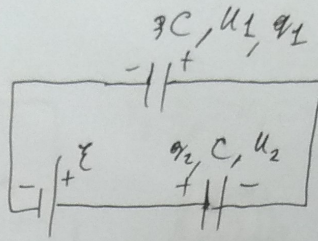 3C, U1, q1
- +
q2, C, U2
- + ε + -